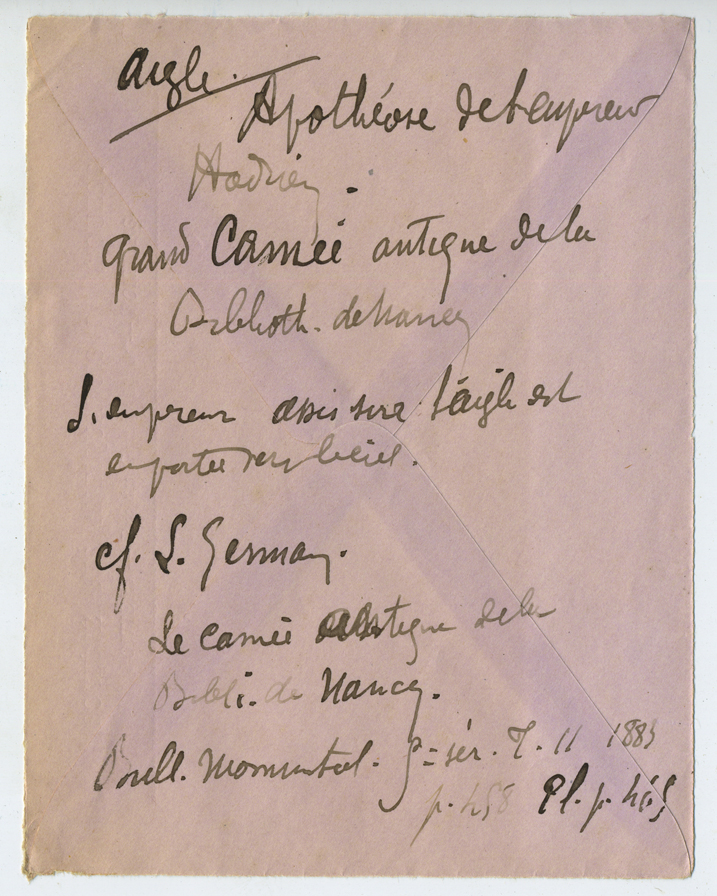 Aigle.
Apothéose de l'empereur
Hadrien.
grand Camée antique de la
Biblioth. de Nancy
L'empereur assis sur l'aigle est
emporté vers le ciel.
cf. L. Germain.
Le camée antique de la
Bibli. de Nancy.
Bull. Monumental. sér. T. 11 1883
p. 458 Pl. p. 465